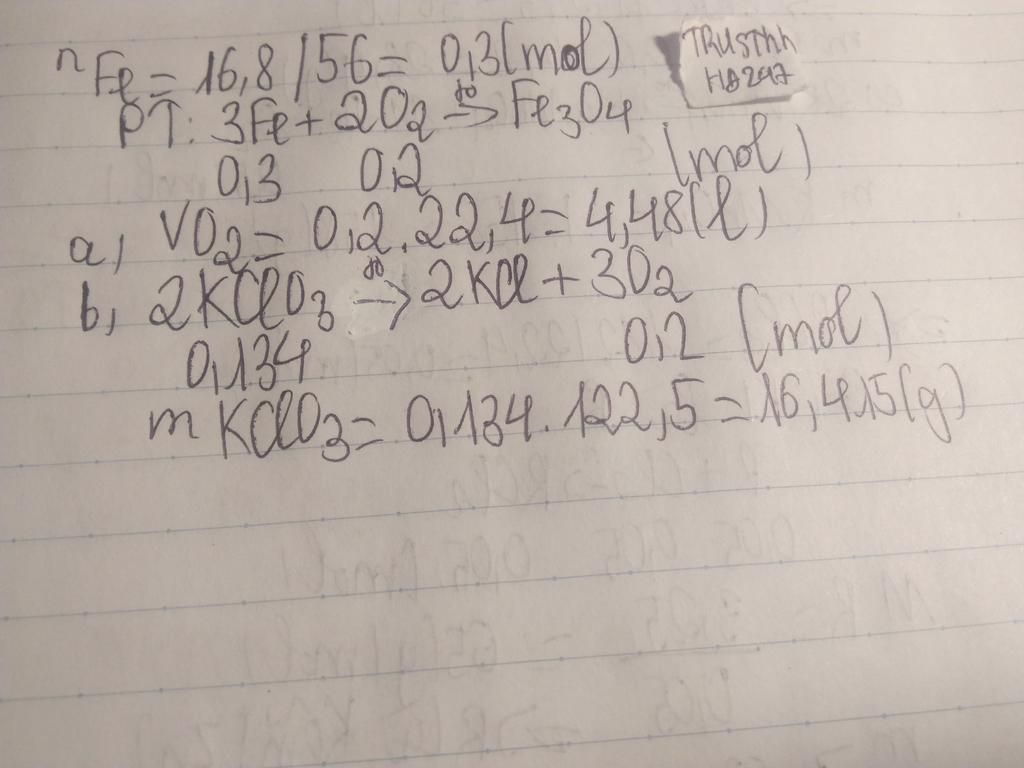 nFe = 16,8 / 56 = 0,3 (mol)
TRUSTHH
HB247
PT: 3Fe + 2O2 t° → Fe3O4
0,3 0,2 (mol)
a, VO2 = 0,2 . 22,4 = 4,48 (l)
b, 2KClO3 t° → 2KCl + 3O2
0,134 0,2 (mol)
mKClO3 = 0,134 . 122,5 = 16,415 (g)